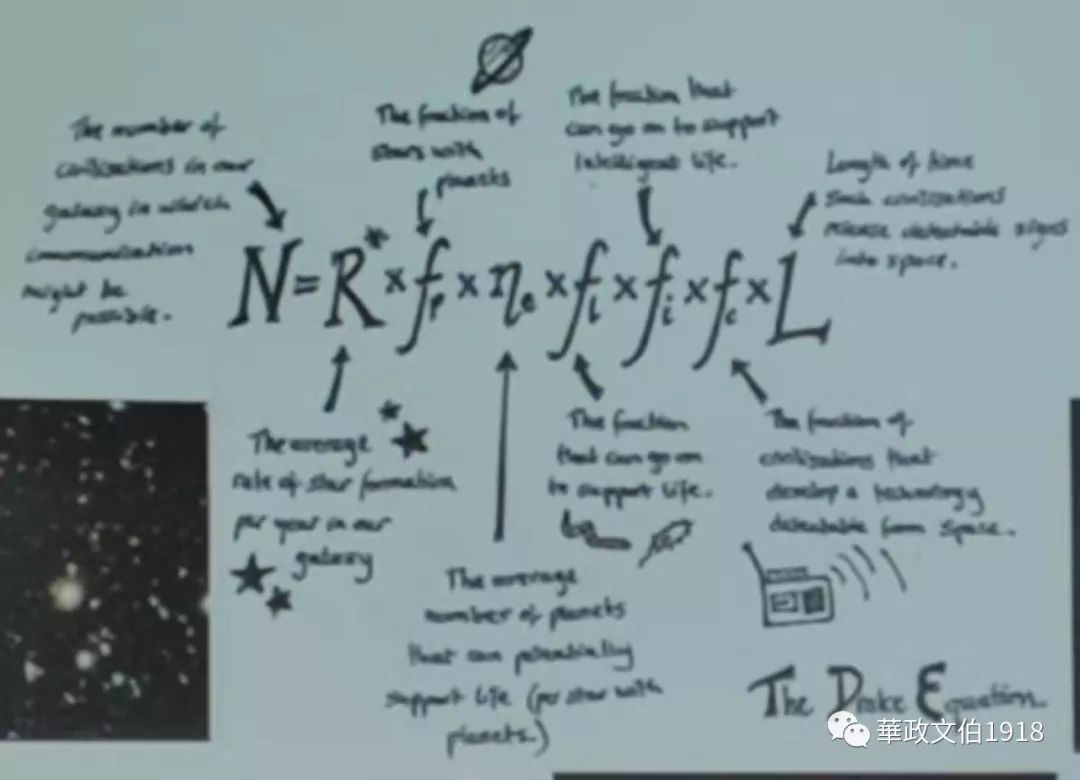 The number of
civilisations in our
galaxy in which
communication
might be
possible.
The fraction of
stars with
planets
The fraction that
can go on to support
intelligent life.
Length of time
such civilisations
release detectable signs
into space.
N=R*×fp×ηe×fl×fi×fc×L
The average
rate of star formation
per year in our
galaxy
The average
number of planets
that can potentially
support life (per star with
planets.)
The fraction
that can go on
to support life.
The fraction of
civilisations that
develop a technology
detectable from space.
The Drake Equation.
華政文伯1918